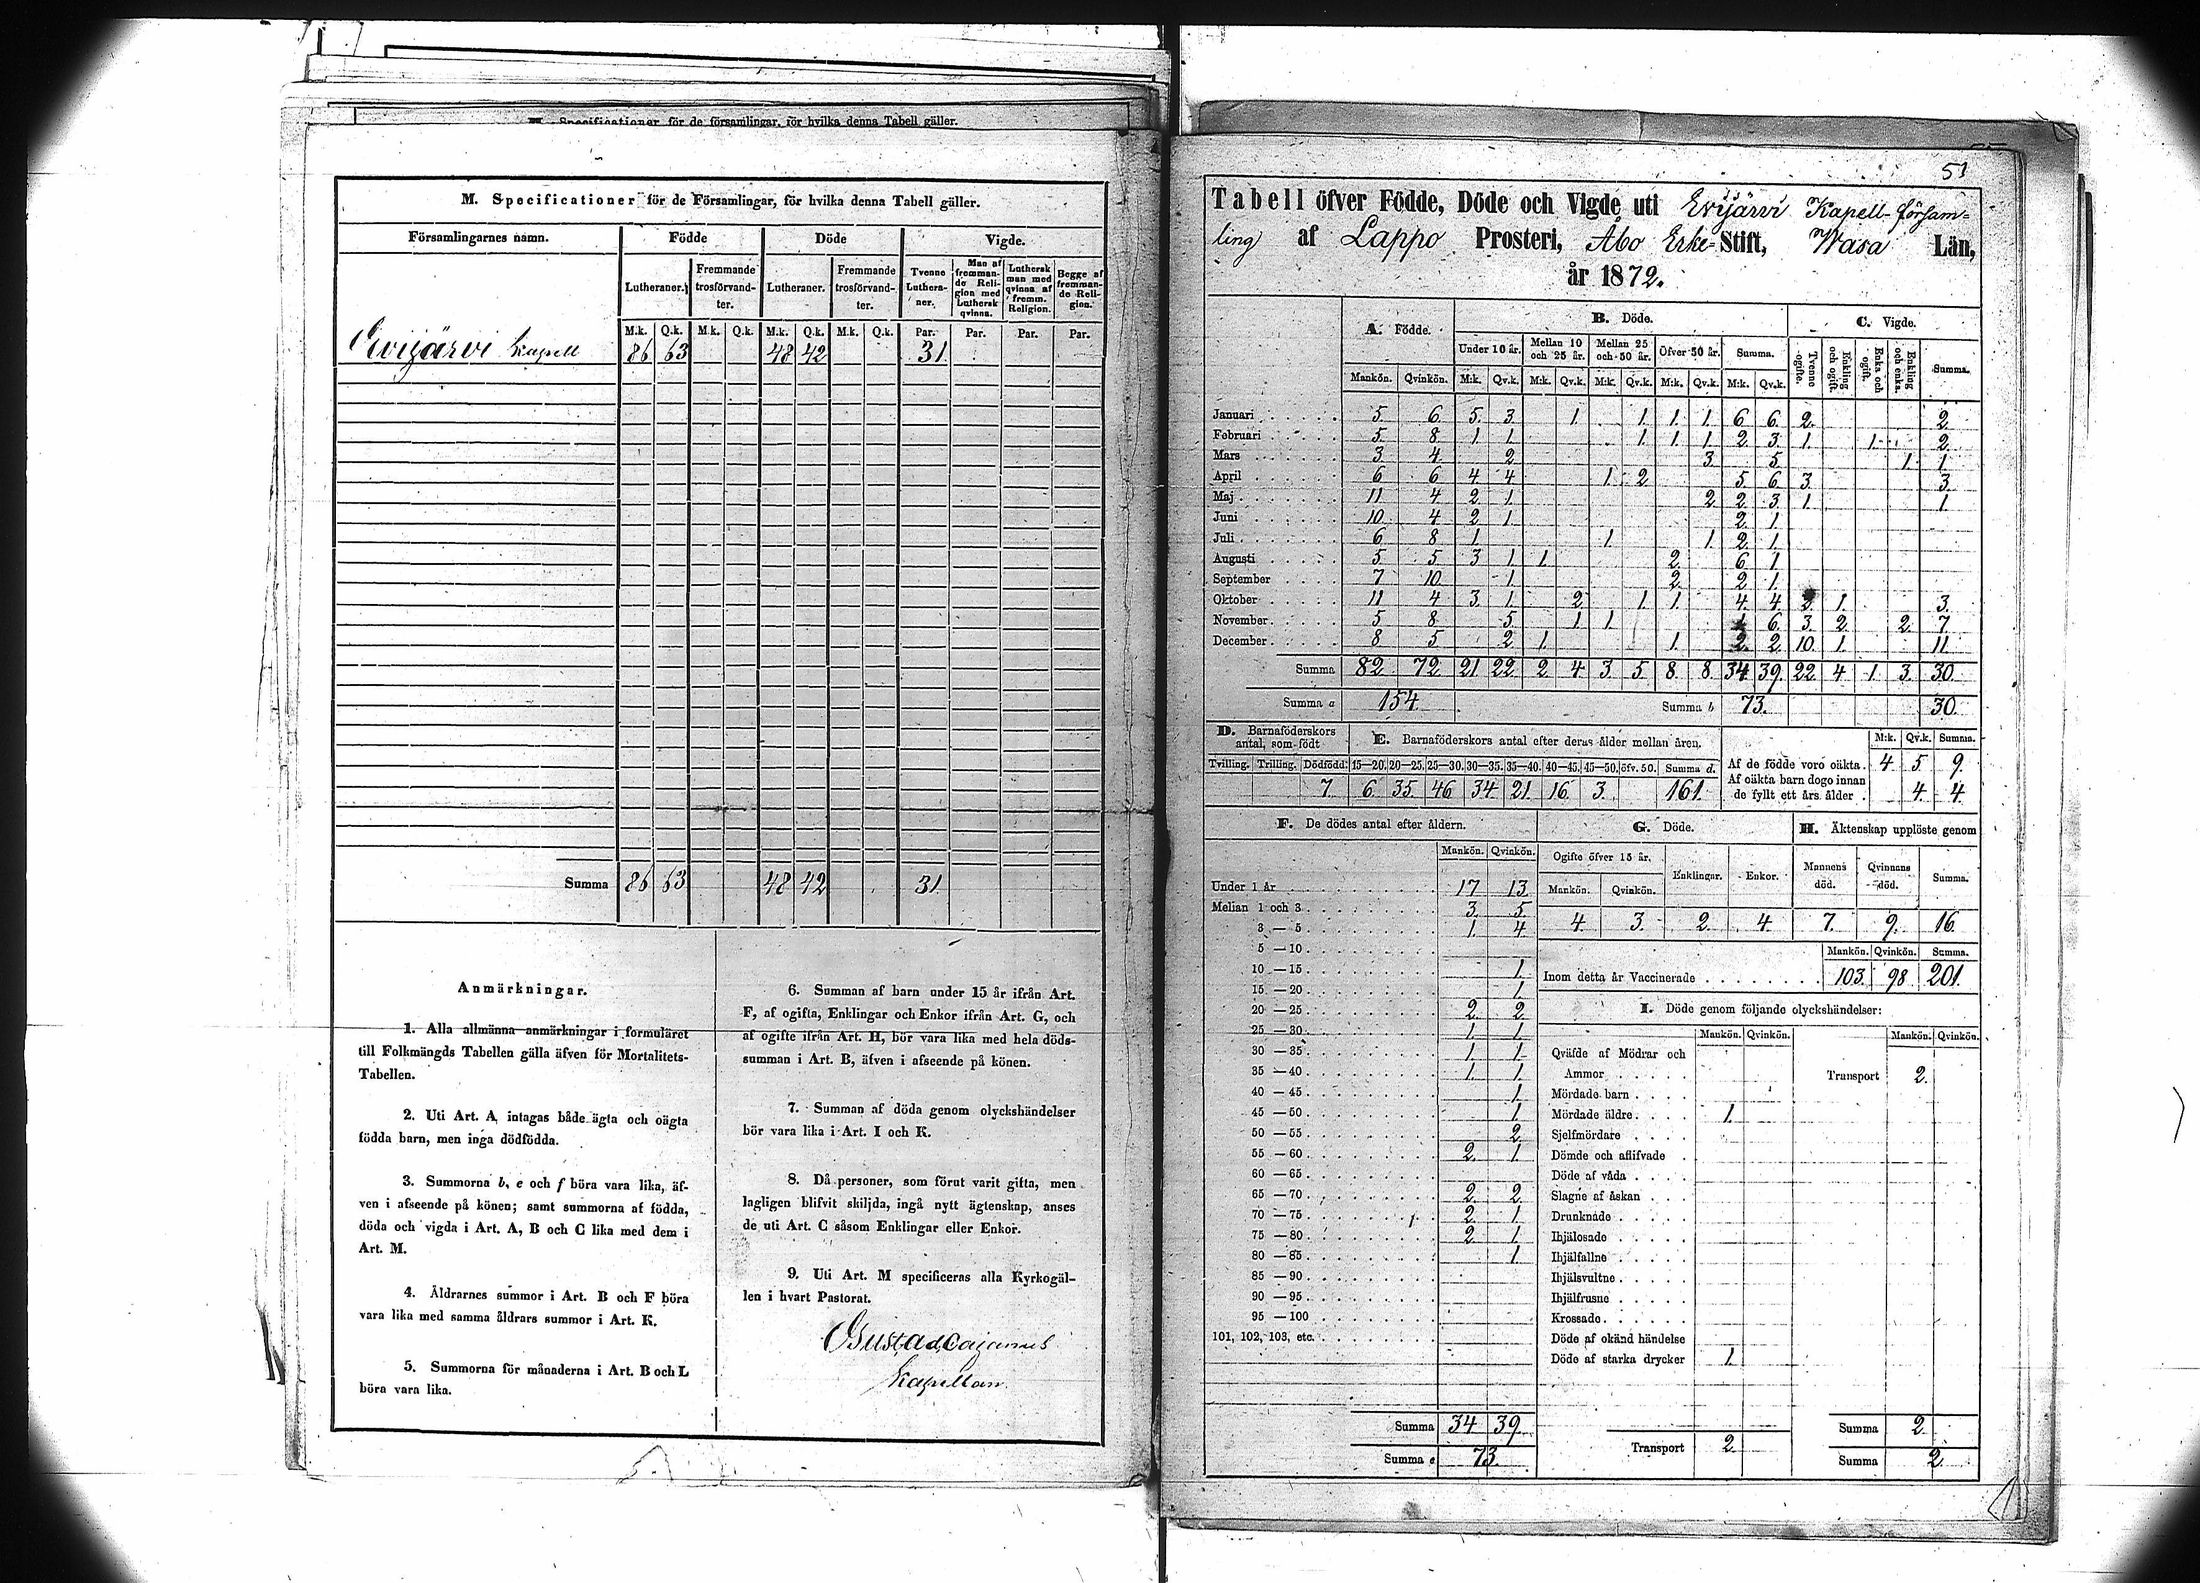 Specificationer för de församlingar, för hvilka denna Tabell gäller.
M. Specificationer för de Församlingar, för hvilka denna Tabell gäller.
Församlingarnes namn. Födde Döde Vigde.
Lutheraner. Fremmande trosförvandter. Lutheraner. Fremmande trosförvandter. Tvenne Lutheraner. Man af fremmande Religion med Luthersk qvinna. Luthersk man med qvinna af fremm. Religion. Begge af fremmande Religion.
M.k. Q.k. M.k. Q.k. M.k. Q.k. M.k. Q.k. Par. Par. Par. Par.
Evijärvi Kapell 86 63 48 42 31
Summa 86 63 48 42 31
Anmärkningar.
1. Alla allmänna anmärkningar i formuläret
till Folkmängds Tabellen gälla äfven för Mortalitets-
Tabellen.
2. Uti Art. A, intagas både ägta och oägta
födda barn, men inga dödfödda.
3. Summorna b, e och f böra vara lika, äf-
ven i afseende på könen; samt summorna af födda,
döda och vigda i Art. A, B och C lika med dem i
Art. M.
4. Åldrarnes summor i Art. B och F böra
vara lika med samma åldrars summor i Art. K.
5. Summorna för månaderna i Art. B och L
böra vara lika.
6. Summan af barn under 15 år ifrån Art.
F, af ogifta, Enklingar och Enkor ifrån Art. G, och
af ogifte ifrån Art. H, bör vara lika med hela döds-
summan i Art. B, äfven i afseende på könen.
7. Summan af döda genom olyckshändelser
bör vara lika i Art. I och K.
8. Då personer, som förut varit gifta, men
lagligen blifvit skiljda, ingå nytt ägtenskap, anses
de uti Art. C såsom Enklingar eller Enkor.
9. Uti Art. M specificeras alla Kyrkogäl-
len i hvart Pastorat.
Gustaf Cajanus
Kapellan
51
Tabell öfver Födde, Döde och Vigde uti Evijärvi Kapell-försam=
ling af Lappo Prosteri, Åbo Erke=Stift, Wasa Län,
år 1872.
A. Födde. B. Döde. C. Vigde.
Under 10 år. Mellan 10 och 25 år. Mellan 25 och 50 år. Öfver 50 år. Summa. Tvenne ogifte. Enkling och ogift. Enka och ogift. Enkling och enka. Summa.
Mankön. Qvinkön. M:k. Qv.k. M:k. Qv.k. M:k. Qv.k. M:k. Qv.k. M:k. Qv.k.
Januari 5 6 5 3 1 1 1 1 6 6 2 2
Februari 5 8 1 1 1 1 1 2 3 1 1 2
Mars 3 4 2 3 5 1 1
April 6 6 4 4 1 2 5 6 3 3
Maj 11 4 2 1 2 2 3 1 1
Juni 10 4 2 1 2 1
Juli 6 8 1 1 1 2 1
Augusti 5 5 3 1 1 2 6 1
September 7 10 1 2 2 1
Oktober 11 4 3 1 2 1 1 4 4 2 1 3
November 5 8 5 1 1 1 6 3 2 2 7
December 8 5 2 1 1 2 2 10 1 11
Summa 82 72 21 22 2 4 3 5 8 8 34 39 22 4 1 3 30
Summa a 154 Summa b 73. 30
D. Barnaföderskors antal, som födt E. Barnaföderskors antal efter deras ålder mellan åren. M:k. Qv.k. Summa.
Tvilling. Trilling. Dödfödd. 15—20. 20—25. 25—30. 30—35. 35—40. 40—45. 45—50. öfv. 50. Summa d.
7 6 35 46 34 21 16 3 161
Af de födde voro oäkta. 4 5 9
Af oäkta barn dogo innan
de fyllt ett års ålder. 4 4
F. De dödes antal efter åldern.
Mankön. Qvinkön.
Under 1 år 17 13
Mellan 1 och 3 3 5
3 — 5 1 4
5 — 10
10 — 15 1
15 — 20 1
20 — 25 2 2
25 — 30 1 1
30 — 35 1 1
35 — 40 1 1
40 — 45 1
45 — 50 1
50 — 55 2
55 — 60 2 1
60 — 65
65 — 70 2 2
70 — 75 2 1
75 — 80 2 1
80 — 85 1
85 — 90
90 — 95
95 — 100
101, 102, 103, etc.
Summa 34 39
Summa e 73
G. Döde. H. Äktenskap upplöste genom
Ogifte öfver 15 år. Enklingar. Enkor. Mannens död. Qvinnans död. Summa.
Mankön. Qvinkön.
4 3 2 4 7 9 16
Mankön. Qvinkön. Summa
Inom detta år Vaccinerade 103 98 201
I. Döde genom följande olyckshändelser:
Mankön. Qvinkön. Mankön. Qvinkön.
Qväfde af Mödrar och
Ammor
Transport 2
Mördade barn
Mördade äldre 1
Sjelfmördare
Dömde och aflifvade
Döde af våda
Slagne af åskan
Drunknade
Ihjälosade
Ihjälfallne
Ihjälsvultne
Ihjälfrusne
Krossade
Döde af okänd händelse
Döde af starka drycker 1
Transport 2
Summa 2
Summa 2